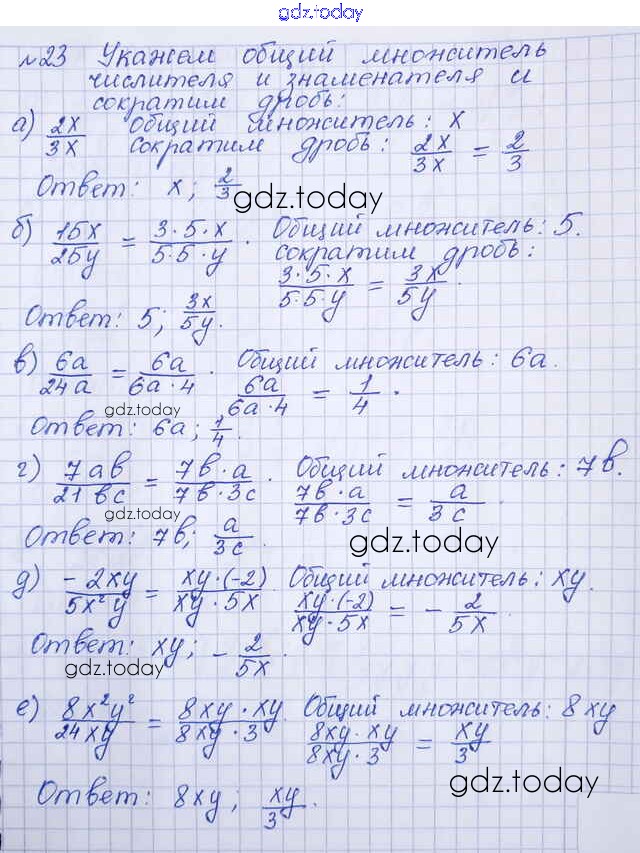 gdz.today
№23 Укажем общий множитель
числителя и знаменателя и
сократим дробь:
а) 2x/3x общий множитель: x
сократим дробь: 2x/3x = 2/3
Ответ: x; 2/3
gdz.today
б) 15x/25y = 3·5·x/5·5·y. Общий множитель: 5.
сократим дробь:
3·5·x/5·5·y = 3x/5y.
Ответ: 5; 3x/5y.
в) 6a/24a = 6a/6a·4. Общий множитель: 6a.
6a/6a·4 = 1/4.
gdz.today
Ответ: 6a; 1/4.
г) 7ab/21bc = 7b·a/7b·3c. Общий множитель: 7b.
7b·a/7b·3c = a/3c.
gdz.today
Ответ: 7b; a/3c.
gdz.today
д) -2xy/5x²y = xy·(-2)/xy·5x. Общий множитель: xy.
xy·(-2)/xy·5x = -2/5x.
Ответ: xy; -2/5x.
gdz.today
е) 8x²y²/24xy = 8xy·xy/8xy·3. Общий множитель: 8xy
8xy·xy/8xy·3 = xy/3
gdz.today
Ответ: 8xy; xy/3.